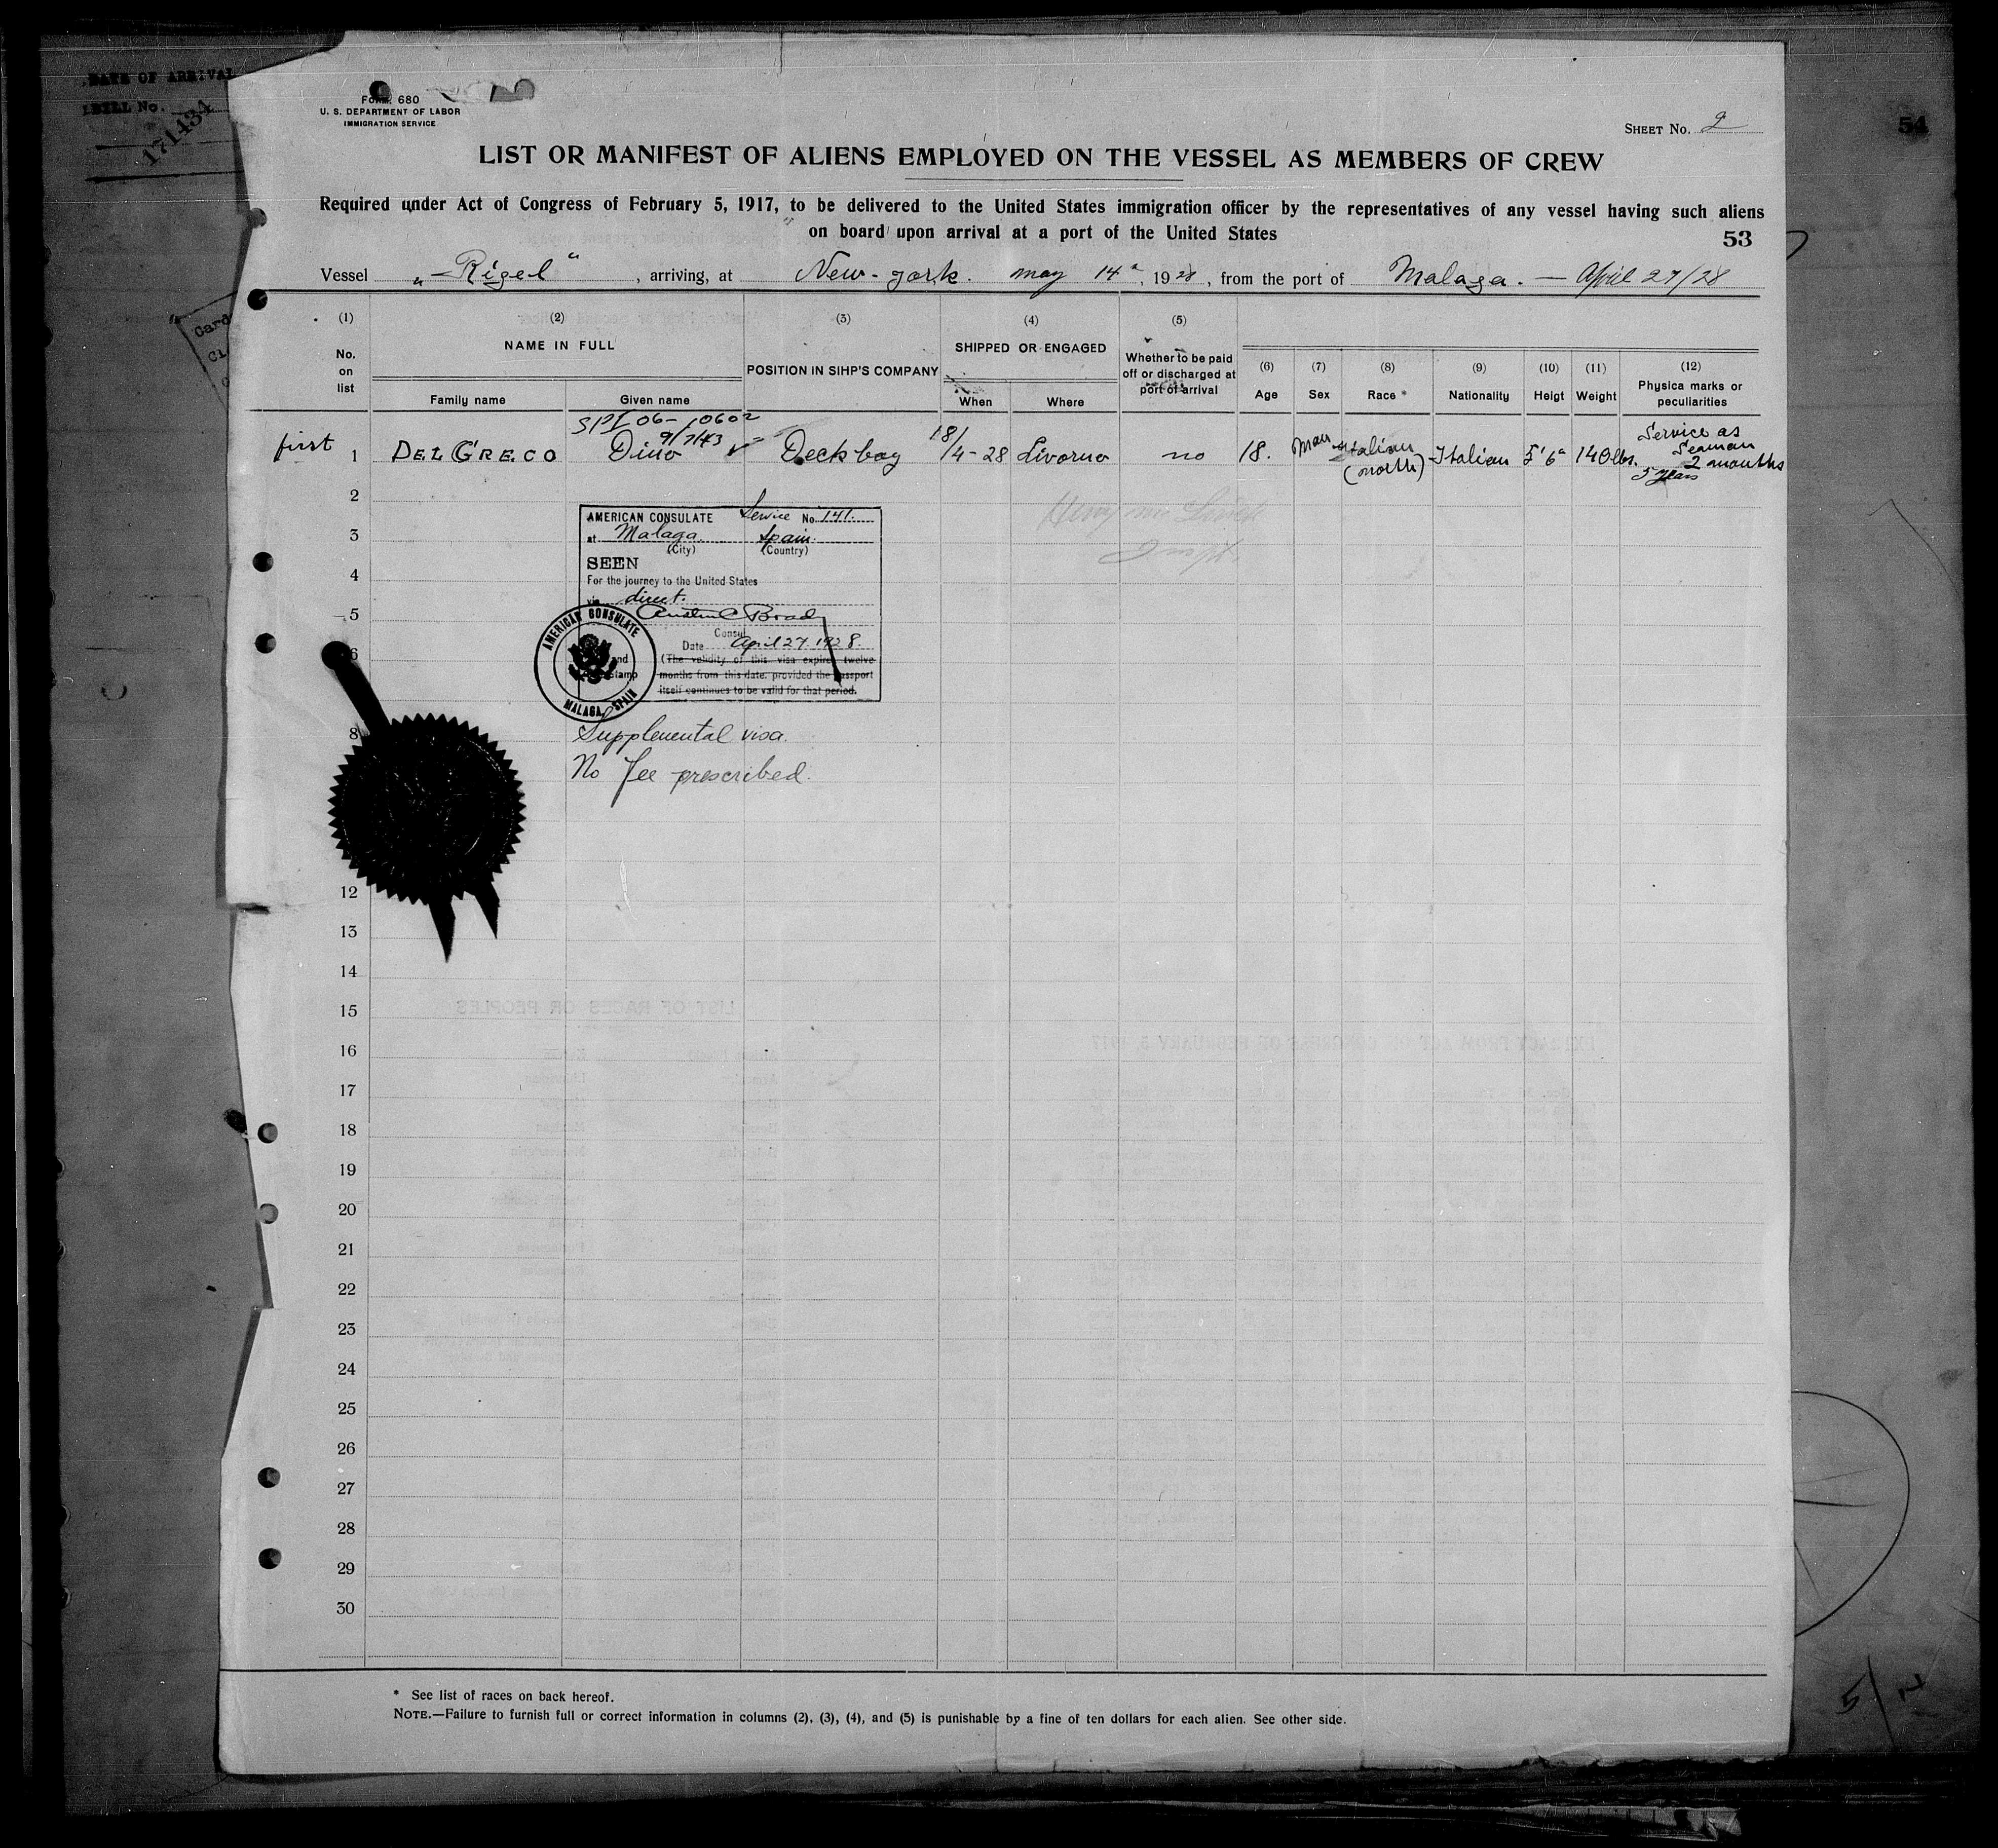 DATE OF ARRIVAL
BILL No.
171434
Form 680
U. S. DEPARTMENT OF LABOR
IMMIGRATION SERVICE
SHEET No. 2
54
LIST OR MANIFEST OF ALIENS EMPLOYED ON THE VESSEL AS MEMBERS OF CREW
Required under Act of Congress of February 5, 1917, to be delivered to the United States immigration officer by the representatives of any vessel having such aliens
on board upon arrival at a port of the United States
53
Vessel „Rigel“, arriving, at New-york. may 14ª, 1928, from the port of Malaga. — April 27/28
(1) (2) (3) (4) (5)
No. on list
NAME IN FULL
Family name Given name
POSITION IN SIHP'S COMPANY
SHIPPED OR ENGAGED
When Where
Whether to be paid off or discharged at port of arrival
(6) (7) (8) (9) (10) (11) (12)
Age Sex Race * Nationality Heigt Weight Physica marks or peculiarities
SPI 06-10602
9/7/43
first 1 DEL GRECO Dino Deckboy 18/4-28 Livorno no 18. Man Italian (north) Italian 5'6" 140 lbs. Service as Seaman
2 months
3 years
2
3
4
5
6
8
AMERICAN CONSULATE Service No. 141.
at Malaga Spain.
(City) (Country)
SEEN
For the journey to the United States
via direct.
Brady
Consul
Date April 27. 1928.
(The validity of this visa expires twelve
months from this date, provided the passport
itself continues to be valid for that period.
AMERICAN CONSULATE
MALAGA, SPAIN
Supplemental visa.
No fee prescribed.
12
13
14
15
16
17
18
19
20
21
22
23
24
25
26
27
28
29
30
* See list of races on back hereof.
NOTE.—Failure to furnish full or correct information in columns (2), (3), (4), and (5) is punishable by a fine of ten dollars for each alien. See other side.